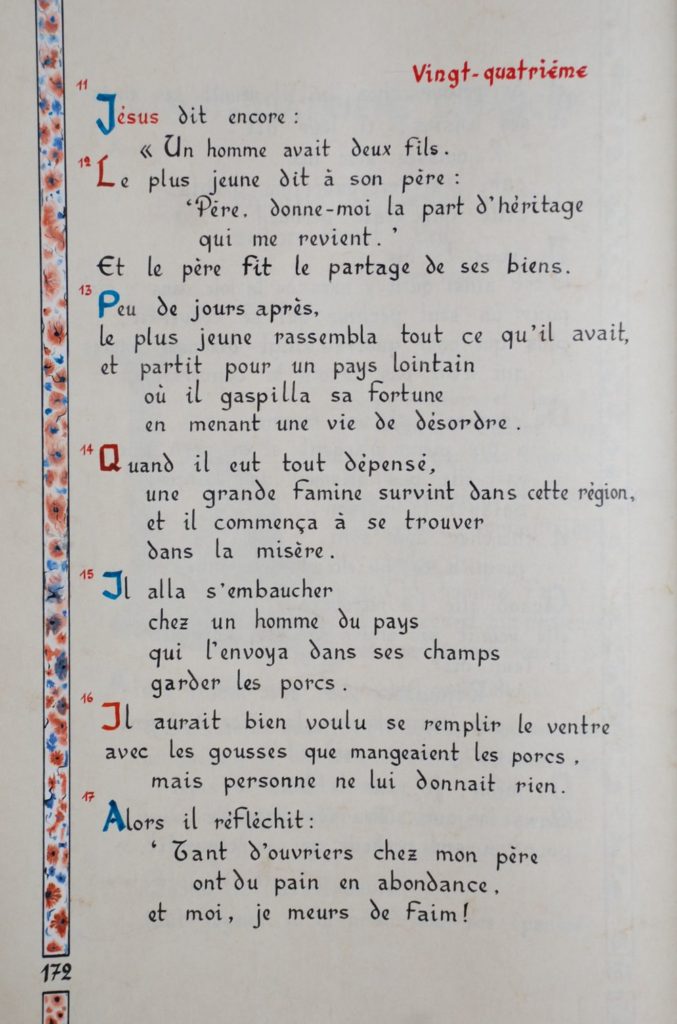 Vingt-quatriéme
11
Jésus dit encore :
« Un homme avait deux fils.
12
Le plus jeune dit à son père :
‘Père, donne-moi la part d'héritage
qui me revient.’
Et le père fit le partage de ses biens.
13
Peu de jours après,
le plus jeune rassembla tout ce qu'il avait,
et partit pour un pays lointain
où il gaspilla sa fortune
en menant une vie de désordre.
14
Quand il eut tout dépensé,
une grande famine survint dans cette région,
et il commença à se trouver
dans la misère.
15
Il alla s'embaucher
chez un homme du pays
qui l'envoya dans ses champs
garder les porcs.
16
Il aurait bien voulu se remplir le ventre
avec les gousses que mangeaient les porcs,
mais personne ne lui donnait rien.
17
Alors il réfléchit :
‘Tant d'ouvriers chez mon père
ont du pain en abondance,
et moi, je meurs de faim!
172